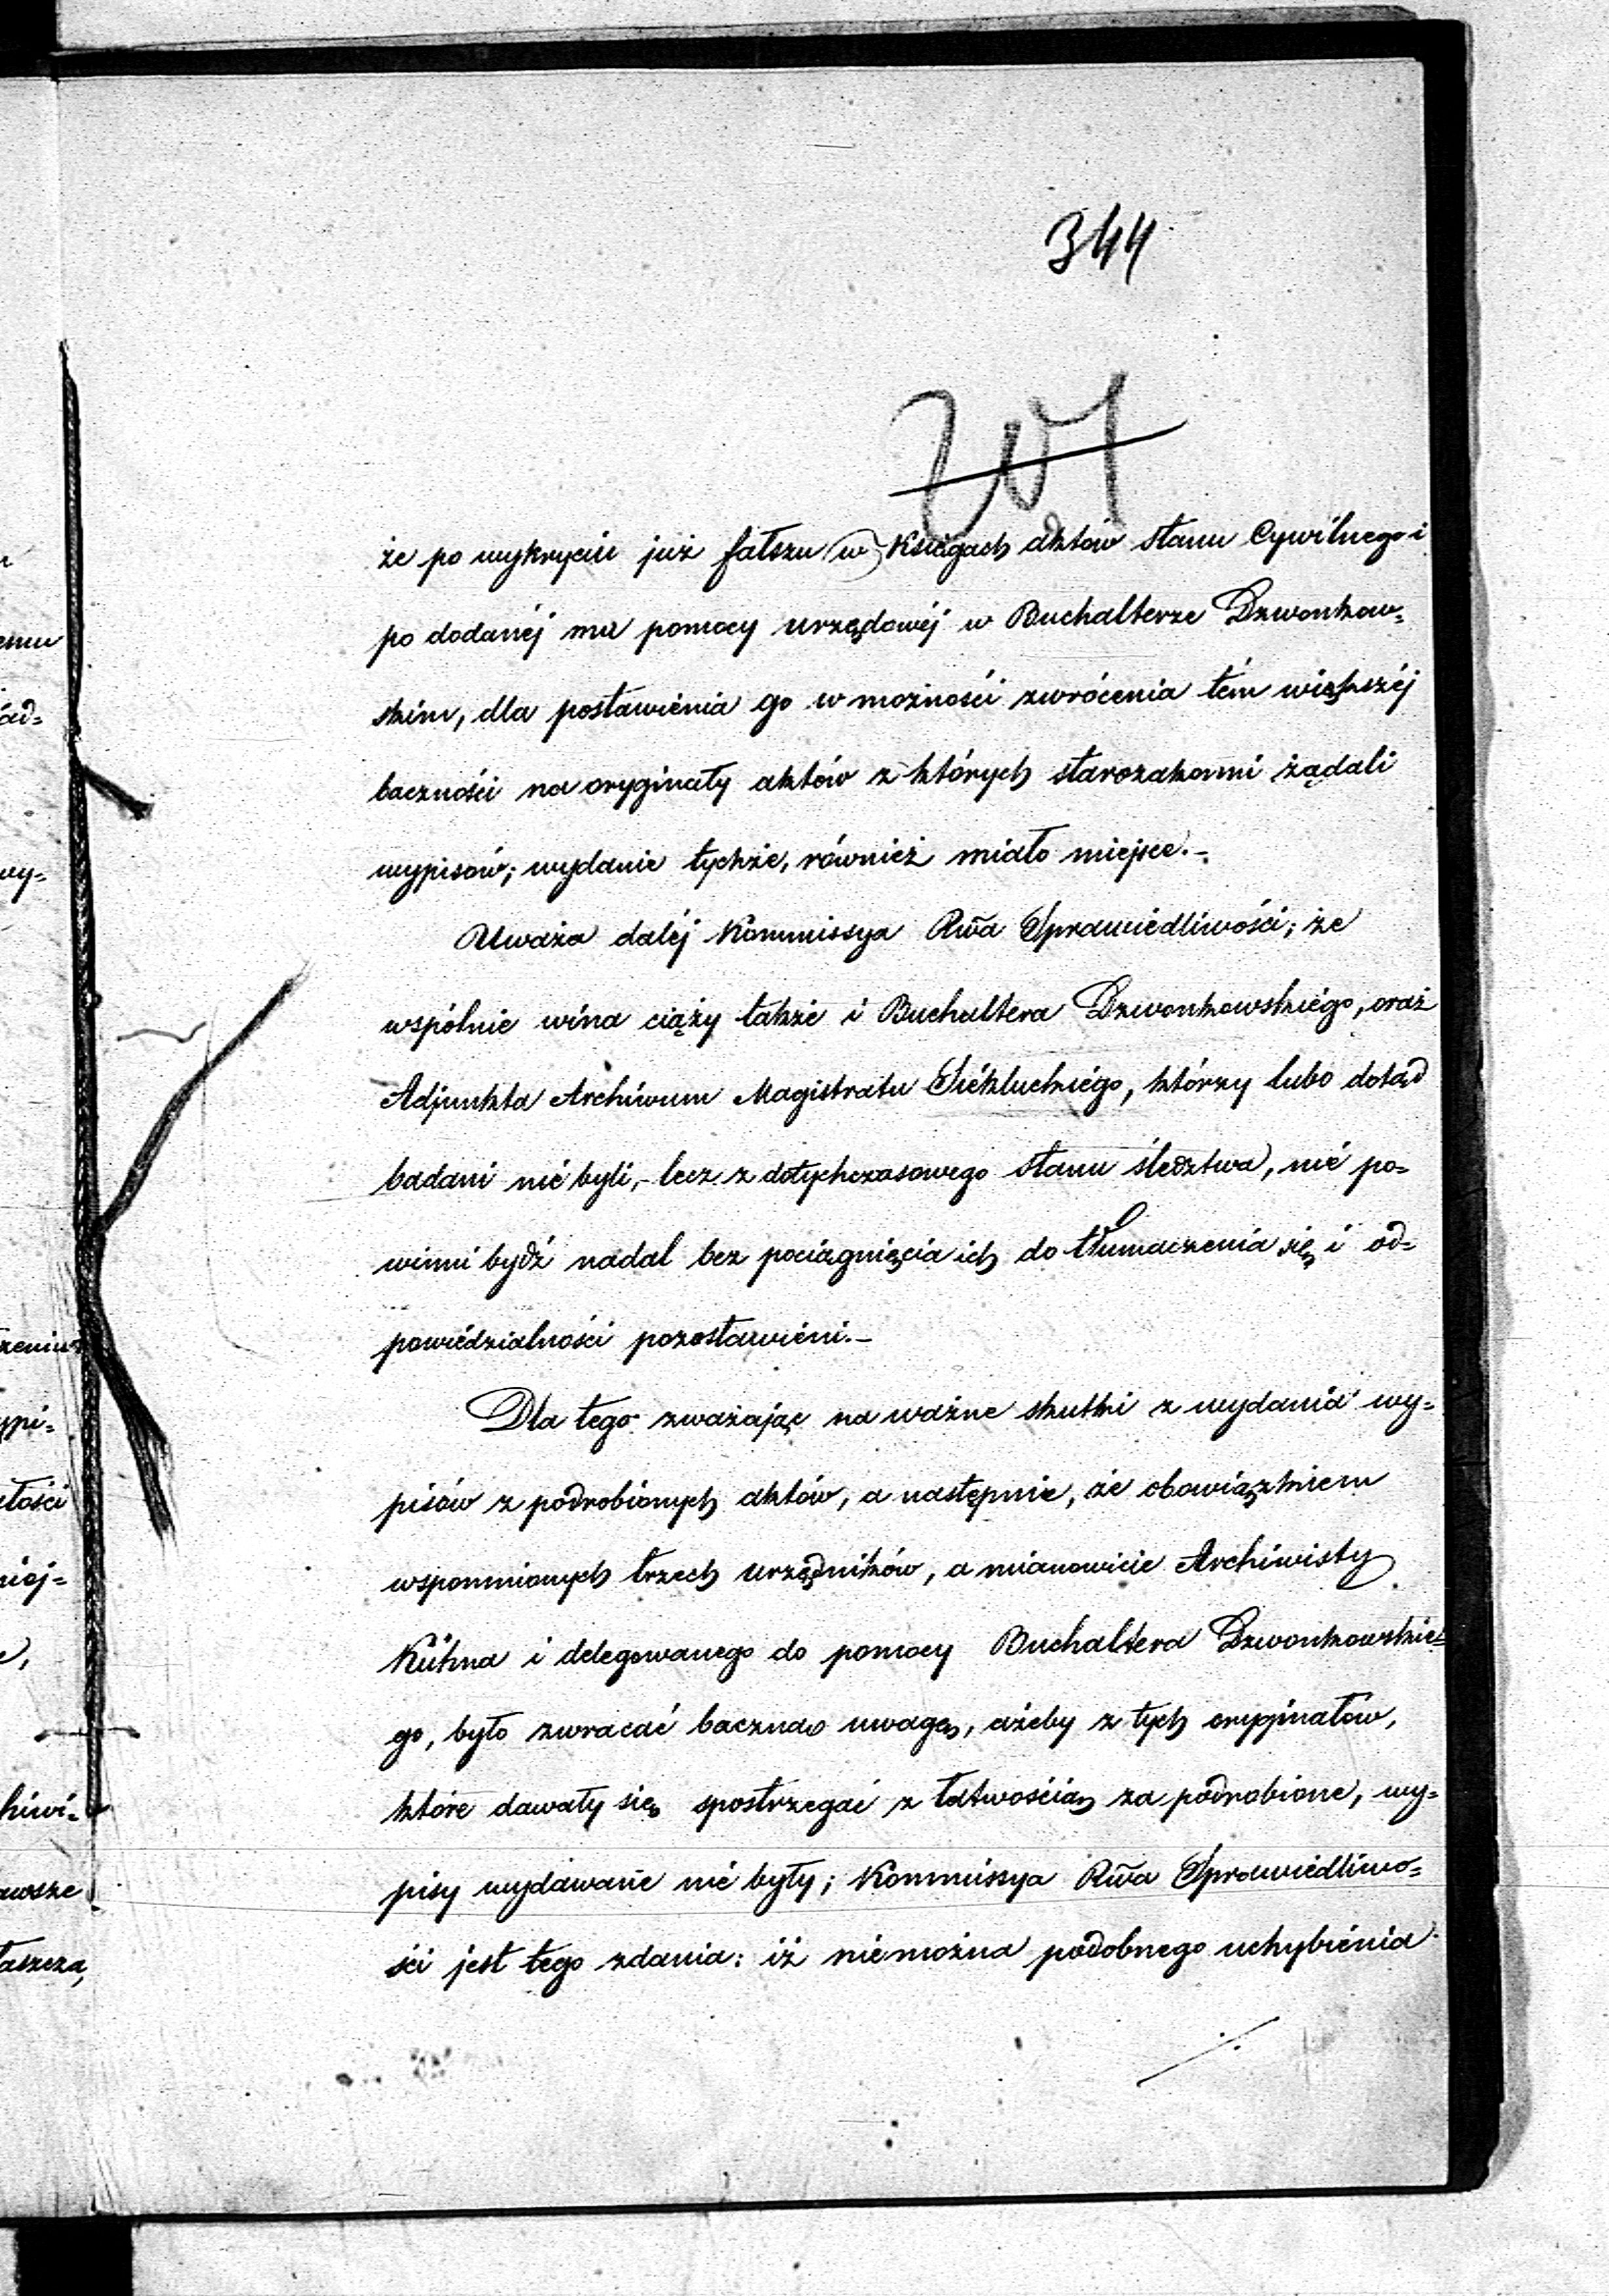 344
201
że po wykryciu już fałszu w Księgach aktów stanu Cywilnego i
po dodanéj mu pomocy urzędowéj w Buchalterze Dzwonkow=
skim, dla postawienia go w możności zwrócenia tém większéj
baczności na oryginały aktów z których starozakonni żądali
wypisów; wydanie tychże, również miało miejsce.–
Uważa daléj Kommissya Rwa Sprawiedliwości; że
wspólnie wina ciąży także i Buchaltera Dzwonkowskiego, oraz
Adjunkta Archiwum Magistratu Siekluckiego, którzy lubo dotąd
badani nie byli, – lecz z dotychczasowego stanu śledztwa, nie po=
winni bydź nadal bez pociągnięcia ich do tłumaczenia się i od=
powiedzialności pozostawieni.–
Dla tego zważając na ważne skutki z wydania wy=
pisów z podrobionych aktów, a następnie, że obowiązkiem
wspomnionych trzech urzędników, a mianowicie Archiwisty
Kühna i delegowanego do pomocy Buchaltera Dzwonkowskie=
go, było zwracać baczną uwagę, ażeby z tych oryginałów,
które dawały się spostrzegać z łatwością za podrobione, wy=
pisy wydawane nie były; Kommissya Rwa Sprawiedliwo=
ści jest tego zdania: iż niemożna podobnego uchybienia
./.